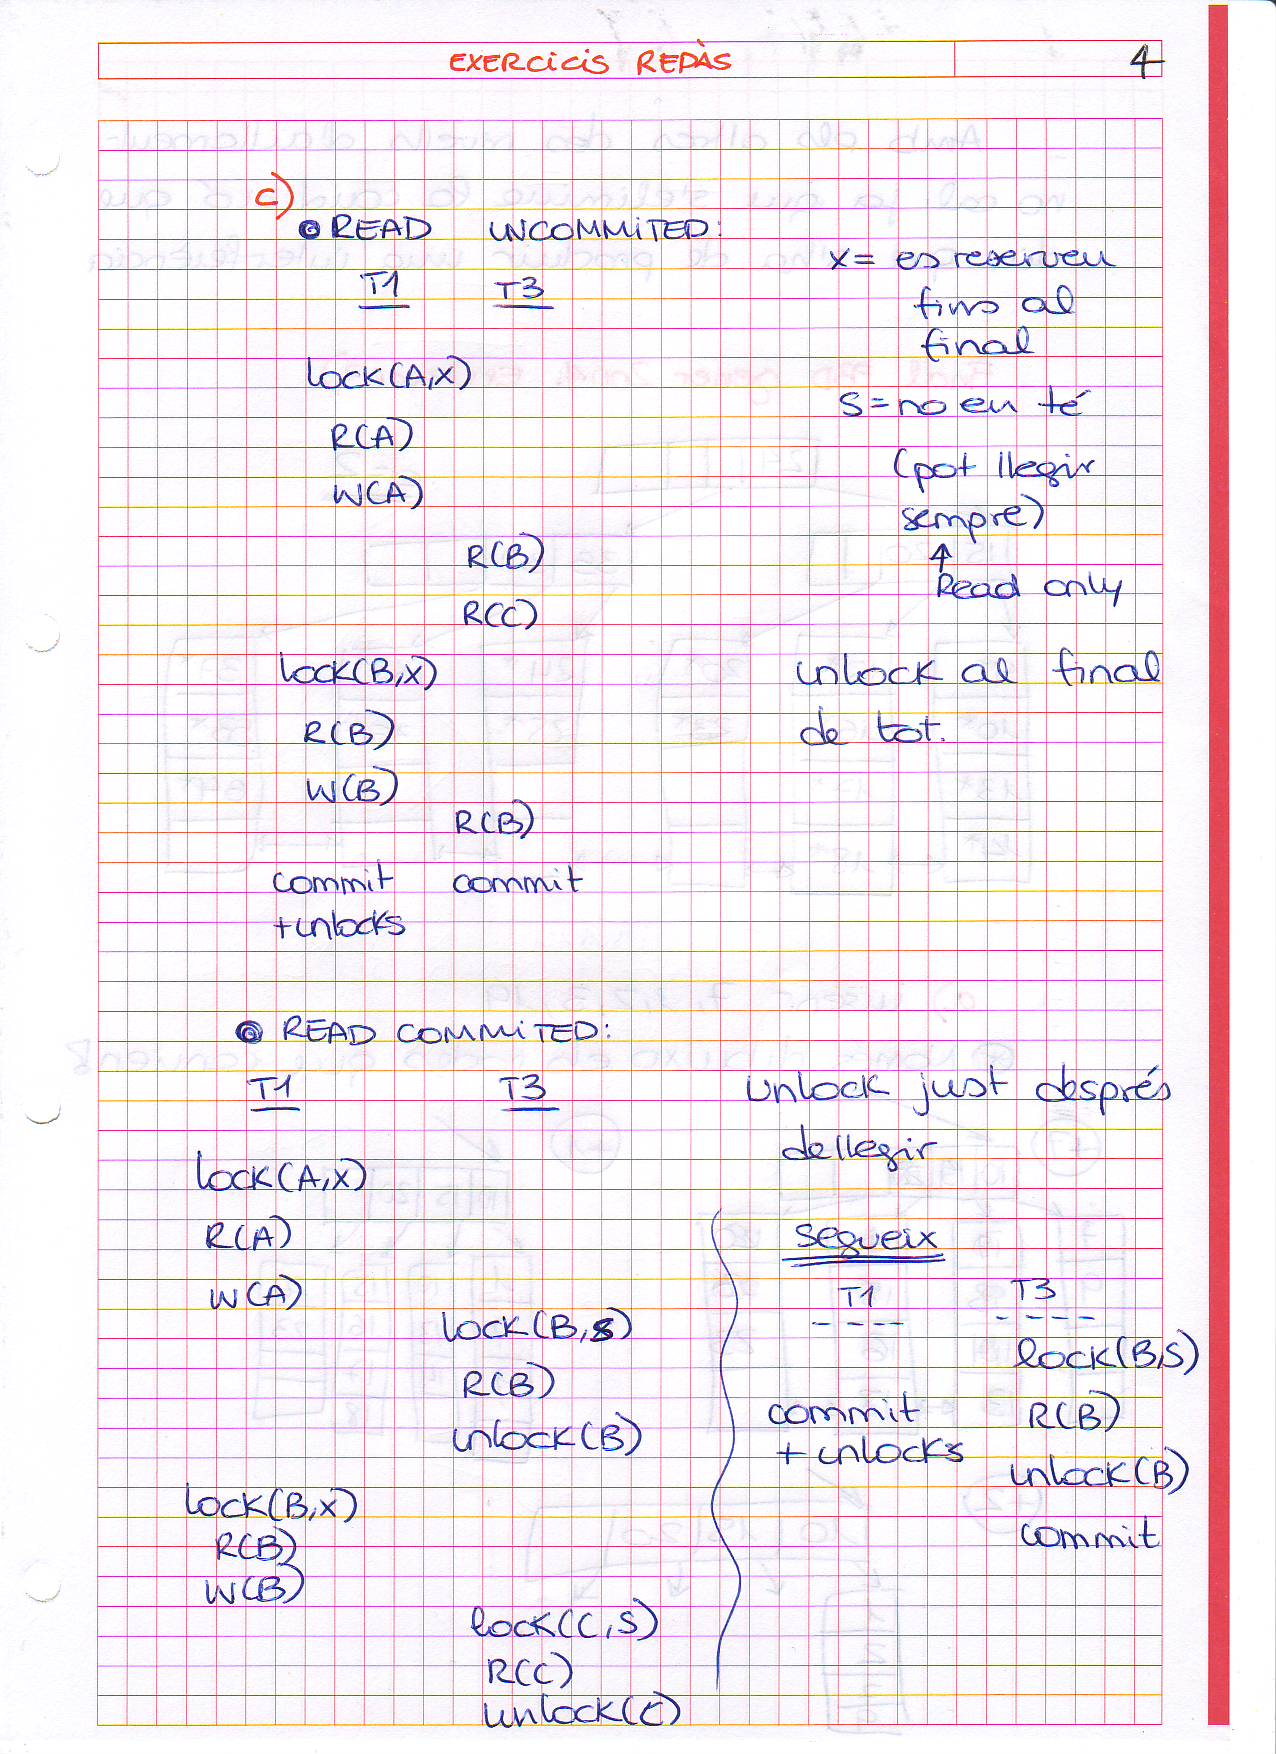 EXERCICIS REPÀS 4
c)
READ UNCOMMITED:
T1 T3
lock(A,X)
R(A)
W(A)
R(B)
R(C)
lock(B,X)
R(B)
W(B)
R(B)
commit commit
+unlocks
X = es reserveu
fins al
final
S = no en té
(pot llegir
sempre)
↑
Read only
unlock al final
de tot.
READ COMMITED:
T1 T3
lock(A,X)
R(A)
W(A)
lock(B,S)
R(B)
unlock(B)
lock(B,X)
R(B)
W(B)
lock(C,S)
R(C)
unlock(C)
unlock just després
de llegir
segueix
T1 T3
lock(B,S)
commit R(B)
+ unlocks
unlock(B)
commit